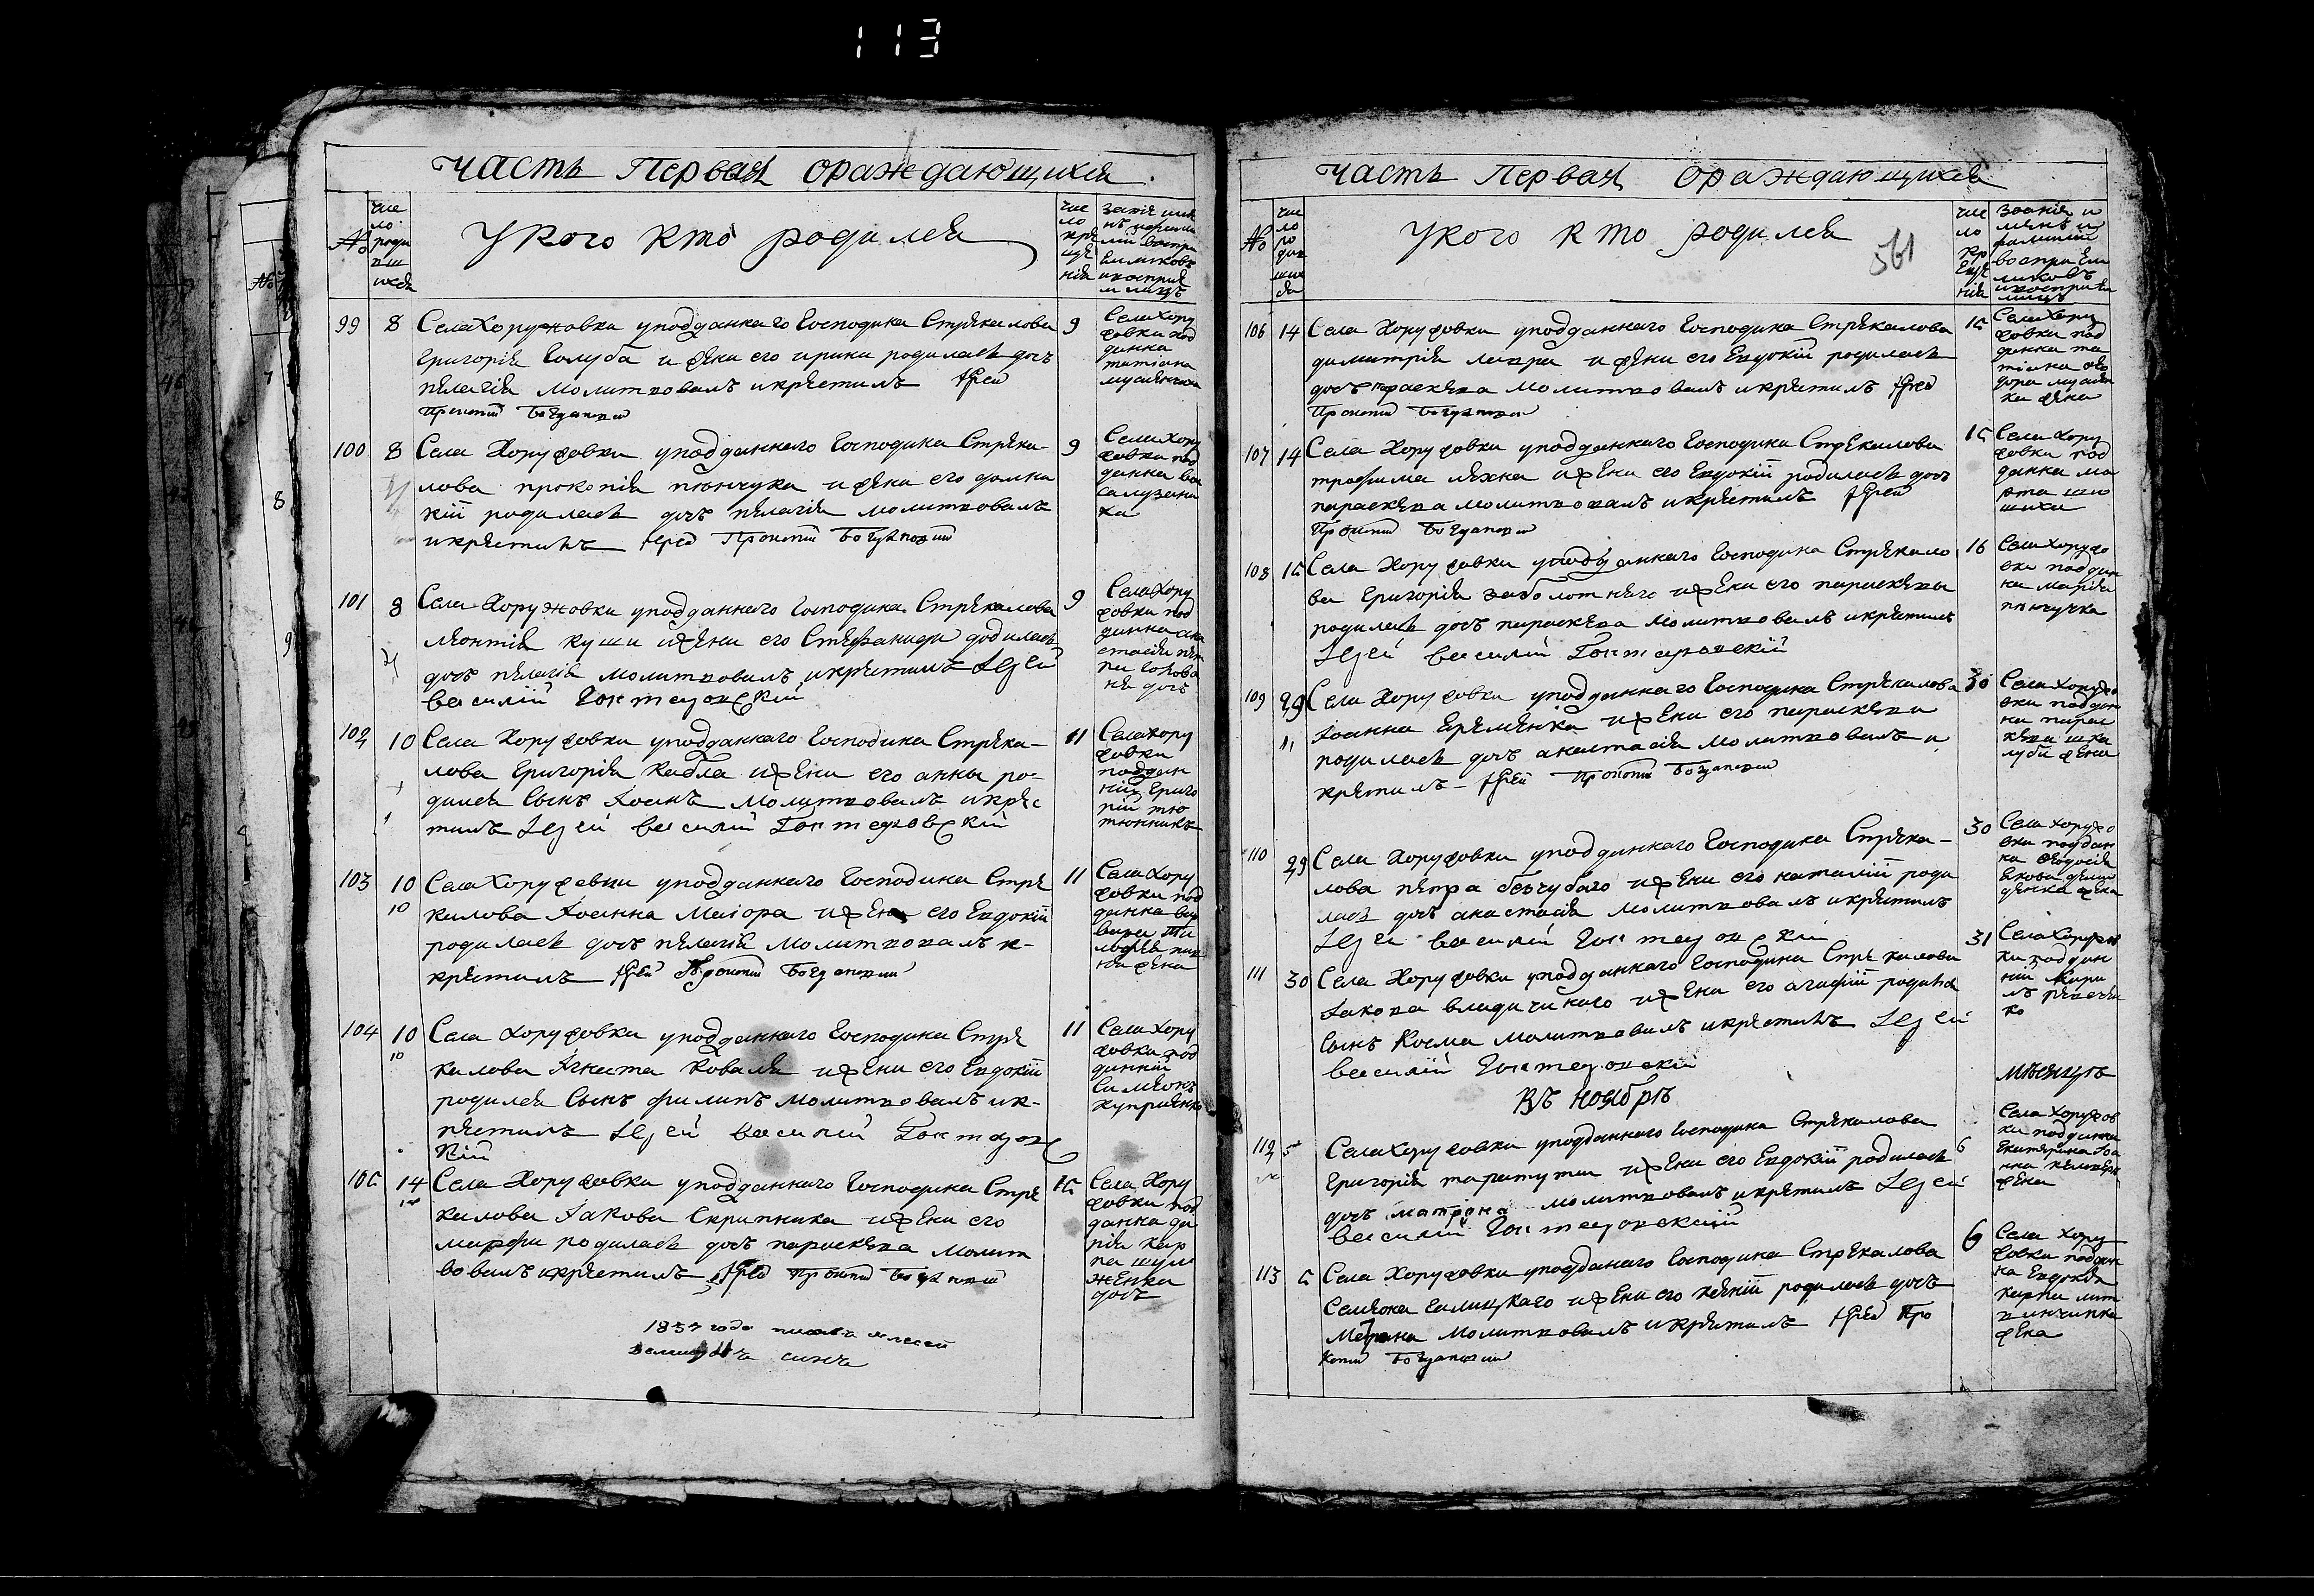 113
часть Первая ораждающихся
№
чис
ло
роди
вш
ихся
У кого кто родился
чис
ло
кре
ще
нія
99
8
Села Хоружовки уподданнаго Господина Стрекалова
9
Григорія Голуба и жени его ирини родилась дочъ
пелагія молитвовалъ икрестилъ Іерей
Прокопій Богдановий
Села Хору
жовки под
данна
татіана
100
8
Села Хоружовки уподданнаго Господина Стрека-
9
лова прокопія пѣнчука и жени его домни
кіи родилась дочъ пелагія молитвовалъ
икрестилъ Іерей Прокопій Богдановий
Села Хору
жовки под
данна
101
8
Села Хоружовки уподданнаго Господина Стрекалова
9
леонтія куши ижени его Стефаниди родилась
дочъ пелагія молитвовалъ икрестилъ Іерей
василій
Села Хору
жовки под
данна ана
стасія
дочъ
102
10
Села Хоружовки уподданнаго Господина Стрека-
11
лова Григорія Кабла ижени его анны ро-
дился Сынъ Іоанъ молитвовалъ икрес
тилъ Іерей василій
Села Хору
жовки
поддан
ний Григо
рій тю
тюнникъ
103
10
10
Села Хоружевки уподданнаго Господина Стре
11
калова Іоанна Маіора ижени его Евдокіи
родилась дочъ пелагія молитвовалъ и-
крестилъ Іерей Прокопій Богдановий
Села Хору
жовки под
данна вар
вара
жена
104
10
10
Села Хоружовки уподданнаго Господина Стре
11
калова Игната Коваля ижени его Евдокіи
родился Сынъ филипъ молитвовалъ ик-
рестилъ Іерей василій
кій
Села Хору
жовки под
данній
Симеонъ
Куприенко
105
14
Села Хоружовки уподданнаго Господина Стре
15
калова Іакова Скрипника ижени его
марфи родилась дочъ параскева молит
вовалъ икрестилъ Іерей Прокопій Богдановий
Села Хору
жовки под
данна да
рія кар
па шул
женка
дочъ
часть Первая ораждающихся
№
чис
ло
ро
див
ших
ся
У кого кто родился
361
чис
ло
кр
еще
нія
званіе и
106
14
Села Хоружовки уподданнаго Господина Стрекалова
15
димитрія лавра и жени его Евдокіи родилась
дочъ параскева молитвовалъ икрестилъ Іерей
Прокопій Богдановий
Села Хору
жовки под
данна та
тіана
жена
107
14
Села Хоружовки уподданнаго Господина Стрекалова
15
трофима ляхна ижени его Евдокіи родилась дочъ
параскева молитвовалъ икрестилъ Іерей
Прокопій Богдановий
Села Хору
жовки под
данна ма
108
15
Села Хоружовки уподданнаго Господина Стрекало
16
ва Григорія заболотнего ижени его параскевы
родилась дочъ параскева молитвовалъ икрестилъ
Іерей василій
Села Хоружо
вки поддан
на марія
109
29
Села Хоружовки уподданнаго Господина Стрекалова
30
Іоанна Еременка ижени его параскеви
родилась дочъ анастасія молитвовалъ и
крестилъ- Іерей Прокопій Богдановий
Села Хоружо
вки поддан
на парас
кева шка
луби жена
110
29
Села Хоружовки уподданнаго Господина Стрека-
30
лова петра безчубаго ижени его наталіи роди
лась дочъ анастасія молитвовалъ икрестилъ
Іерей василій
Села Хоружо
вки поддан
на Феодосія
жена
111
30
Села Хоружовки уподданнаго Господина Стрекалова
31
Іакова владичинаго ижени его агафіи родился
Сынъ Косма молитвовалъ икрестилъ Іерей
василій
Села Хоружов
ки поддан
ній Кири
лъ
Въ ноябрѣ
мѣсяцѣ
112
5
Села Хоружовки уподданнаго Господина Стрекалова
6
Григорія таратути ижени его Евдокіи родилась
дочъ матрона молитвовалъ икрестилъ Іерей
василій
Села Хоружов
ки поддана
Екатерина Іоа
нна
жена
113
5
Села Хоружовки уподданаго Господина Стрекалова
6
Семіона галицкаго ижени его ксеніи родилась дочъ
молитвовалъ икрестилъ Іерей Про
копій Богдановий
Села Хору
жовки поддан
на Евдокія
карпа лит
винчинка
жена
1857 года